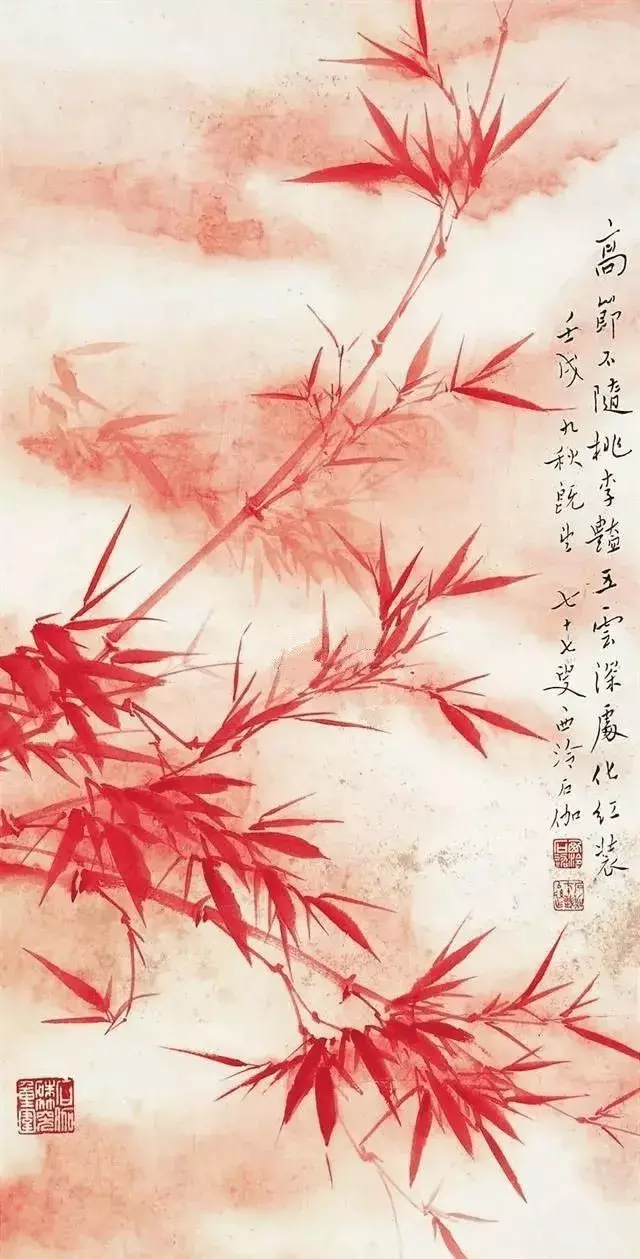 高節不隨桃李豔五雲深處化紅裝
壬戌九秋既望七十七叟西泠石伽